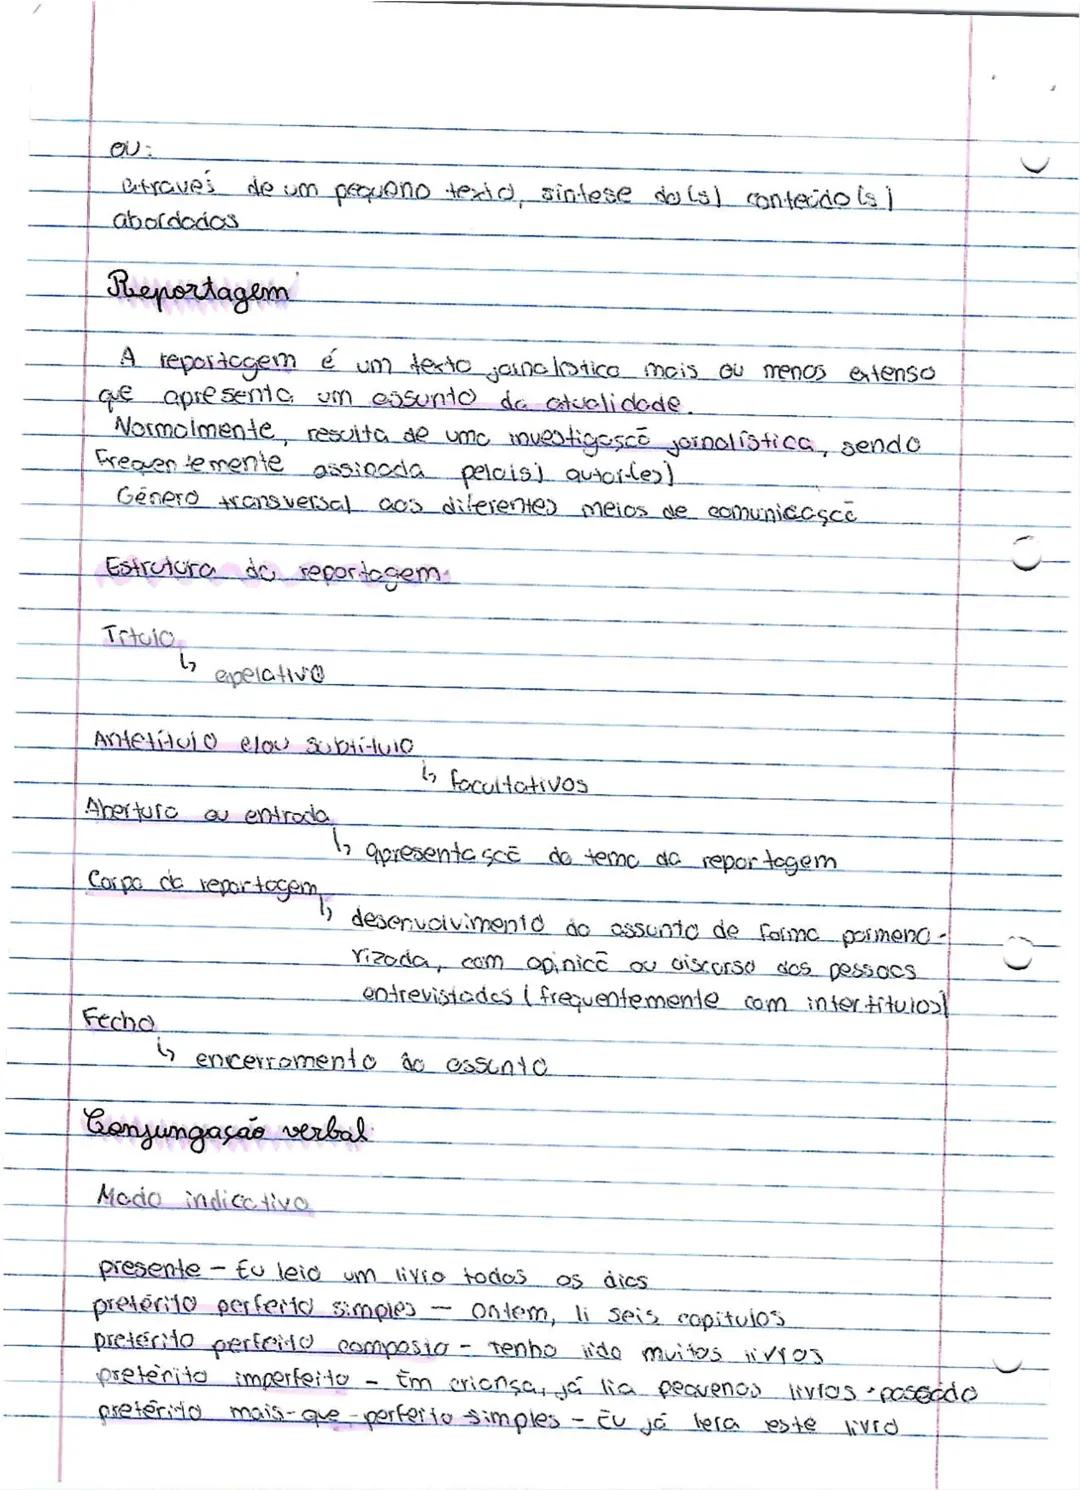 ou:
através de um pequeno texto, síntese do(s) conteúdo(s)
abordados
Reportagem
A reportagem é um texto jornalístico mais ou menos extenso
que apresenta um assunto da atualidade.
Normalmente, resulta de uma investigação jornalística, sendo
Frequentemente assinada pelo(s) autor(es)
Género transversal aos diferentes meios de comunicação
Estrutura da reportagem
Título
↳ apelativo
Antetítulo e/ou subtítulo
↳ facultativos
Abertura ou entrada
↳ apresentação do tema da reportagem
Corpo da reportagem
↳ desenvolvimento do assunto de forma pormeno-
rizada, com opinião ou discurso das pessoas
entrevistadas (frequentemente com intertítulos)
Fecho
↳ encerramento do assunto
Conjungação verbal
Modo indicativo
presente - Eu leio um livro todos os dias
pretérito perfeito simples - Ontem, li seis capítulos
pretérito perfeito composto - Tenho lido muitos livros
pretérito imperfeito - Em criança, já lia pequenos livros - passado
pretérito mais-que-perfeito simples - Eu já lera este livro